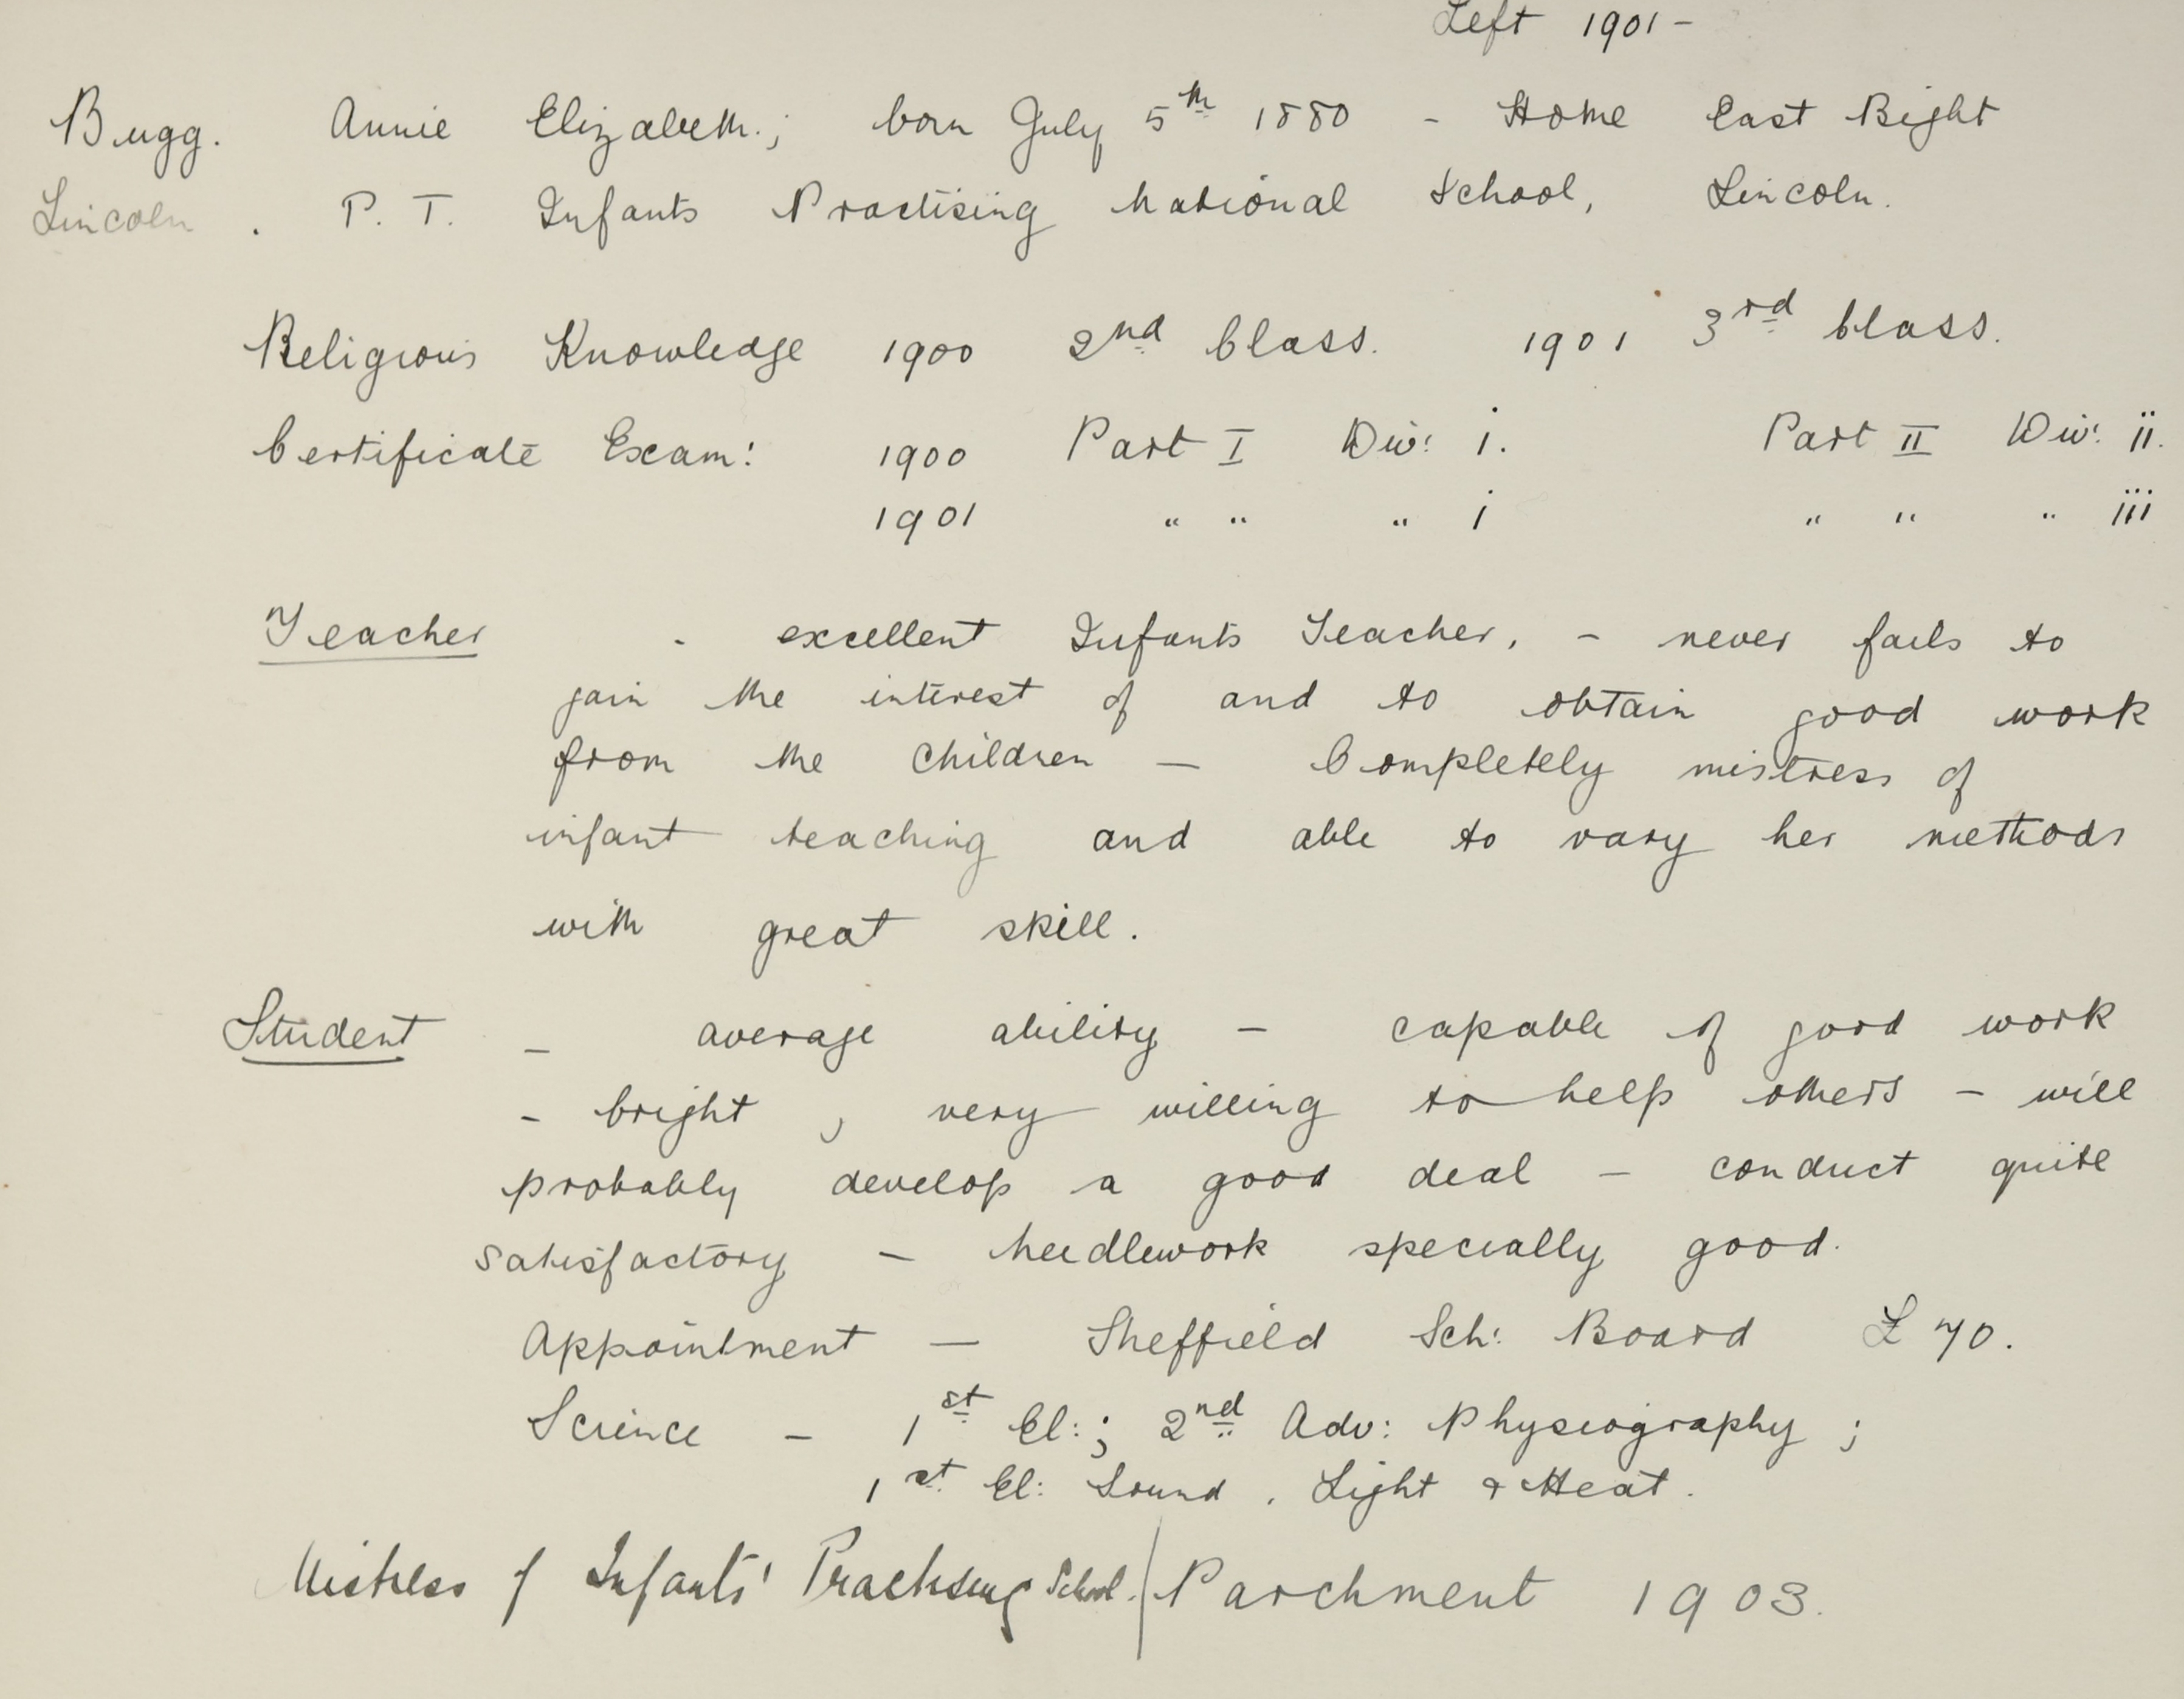 Left 1901 -
Bugg. Annie Elizabeth.; born July 5th 1880 - Home East Bight
Lincoln. P. T. Infants Practising National School, Lincoln.
Religious Knowledge 1900 2nd Class. 1901 3rd Class.
Certificate Exam: 1900 Part I Div: i. Part II Div: ii.
1901 " " " i " " " iii
Teacher - excellent Infants Teacher, - never fails to
gain the interest of and to obtain good work
from the children — Completely mistress of
infant teaching and able to vary her methods
with great skill.
Student - average ability - capable of good work
- bright, very willing to help others - will
probably develop a good deal - conduct quite
satisfactory - Needlework specially good.
Appointment — Sheffield Sch: Board £70.
Science - 1st El:; 2nd Adv: Physiography;
1st El: Sound, Light & Heat.
Mistress of Infants' Practising School. / Parchment 1903.